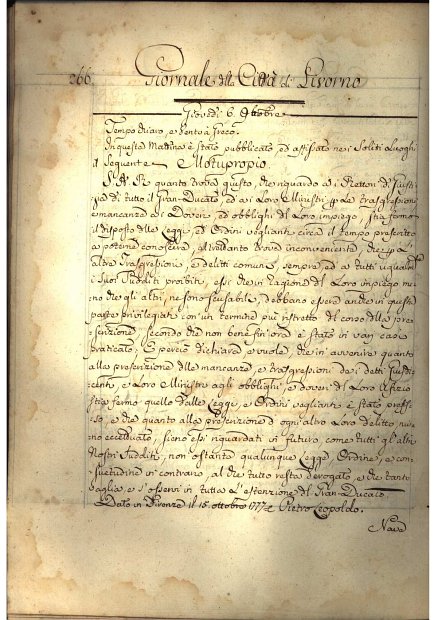 266. Giornale della Città di Livorno
Giovedì 6. Ottobre
Tempo chiaro, e Vento à Greco.
In questa Mattina è stato pubblicato ed affissato nei Soliti Luoghi
il Seguente Motuproprio.
S. A. R. quanto trova giusto, che riguardo ai Rettori di Giusti-
zia di tutto il Gran-Ducato, ed a i Loro Ministri p. le trasgressioni,
e mancanze ai Doveri, ed obblighi del Loro impiego, stia fermo
il disposto delle Leggi, ed Ordini veglianti circa il tempo prescritto
a poterne conoscere, altrettanto trova inconveniente, che p. l'
altre Trasgressioni, e delitti comuni, sempre, ed a tutti ugualm.te
i Suoi Sudditi proibiti, essi che in ragione del Loro impiego me-
no che gli altri, ne sono scusabili, debbano essere anche in questa
parte privilegiati con un termine più ristretto del corso della pre-
scrizione, secondo che non bene fin'ora è stato in varj casi
praticato; E perciò dichiara, e vuole, che in avvenire quanto
alla prescrizione delle mancanze, e trasgressioni de i detti Giusdi-
centi, e Loro Ministri agli obblighi, e doveri del Loro Ufizio
stia fermo quello dalle Leggi, e Ordini veglianti è stato prefis-
so, e che quanto alla prescrizione d'ogni altro Loro delitto, niu-
no eccettuato, sieno essi riguardati in futuro, come tutti gl'altri
Nostri Sudditi, non ostante qualunque Legge, Ordine, e con-
suetudine in contrario, al che tutto resta derogato, e che tanto
vaglia, e s'osservi in tutta l'estenzione del Gran-Ducato.
Dato in Firenze il 15. ottobre 1774 Pietro Leopoldo.